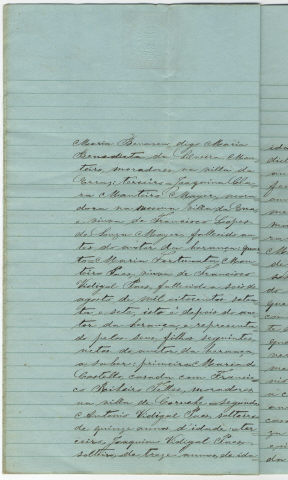 Maria Benavem, digo Maria
Benedicta da Silveira Mon
teiro, moradores na villa de
terceiro Joaquina Cla
ra Monteiro Mayer, mora
dora na mesma villa de
e viuva de Francisco Lopes
de Souza Mayer, fallecido an
tes do autor da herança; quar
to Maria Fortunata Mon
teiro Paes, viuva de Francisco
Vidigal Paes, fallecido a seis de
agosto de mil oitocentos seten
ta e sete, isto é depois do au
tor da herança, e representa
do pelos seus filhos seguintes,
netos do autor da herança
a saber: primeiro Maria do
Castello, casada com Francis
co Ribeiro Telles, moradores
na villa de Coruche, segundo
Antonio Vidigal Paes, solteiro
de quinze annos d'idade, ter
ceiro, Joaquim Vidigal Paes,
solteiro, de treze annos de ida